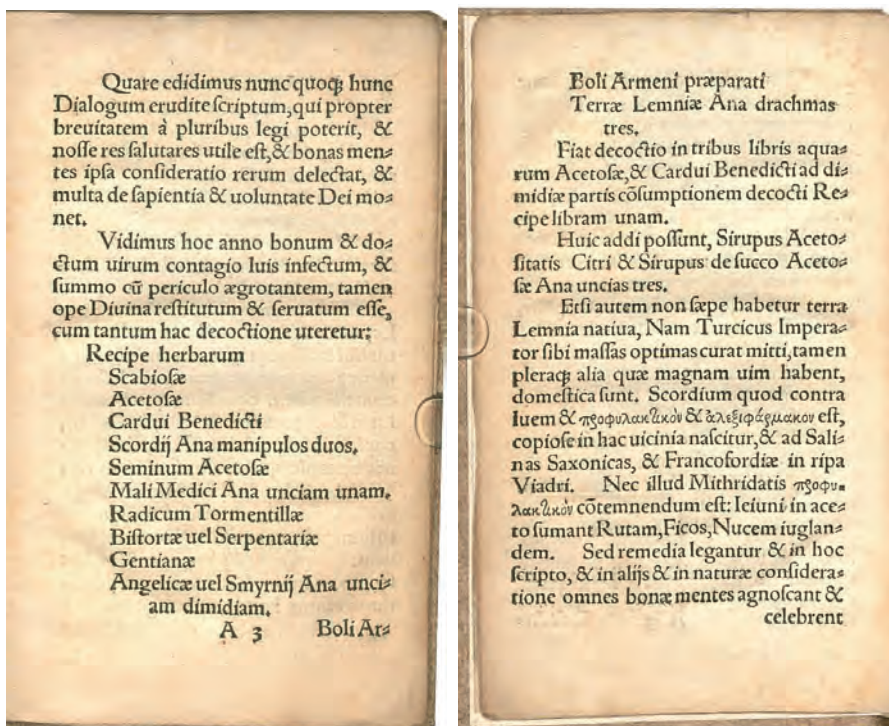 Quare edidimus nunc quoqꝫ hunc
Dialogum erudite ſcriptum, qui propter
breuitatem à pluribus legi poterit, &
noſſe res ſalutares utile eſt, & bonas men⸗
tes ipſa conſideratio rerum delectat, &
multa de ſapientia & uoluntate Dei mo⸗
net.
Vidimus hoc anno bonum & do⸗
ctum uirum contagio luis infectum, &
ſummo cū periculo ægrotantem, tamen
ope Diuina reſtitutum & ſeruatum eſſe,
cum tantum hac decoctione uteretur:
Recipe herbarum
Scabioſæ
Acetoſæ
Cardui Benedicti
Scordij Ana manipulos duos.
Seminum Acetoſæ
Mali Medici Ana unciam unam.
Radicum Tormentillæ
Biſtortæ uel Serpentariæ
Gentianæ
Angelicæ uel Smyrnij Ana unci⸗
am dimidiam.
A 3 Boli Ar⸗
Boli Armeni præparati
Terræ Lemniæ Ana drachmas
tres.
Fiat decoctio in tribus libris aqua⸗
rum Acetoſæ, & Cardui Benedicti ad di⸗
midiæ partis cōſumptionem decocti Re⸗
cipe libram unam.
Huic addi poſſunt, Sirupus Aceto⸗
ſitatis Citri & Sirupus de ſucco Aceto⸗
ſæ Ana uncias tres.
Etſi autem non ſæpe habetur terra
Lemnia natiua, Nam Turcicus Impera⸗
tor ſibi maſſas optimas curat mitti, tamen
pleraqꝫ alia quæ magnam uim habent,
domeſtica ſunt. Scordium quod contra
luem & προφυλακτικὸν & ἀλεξιφάρμακον eſt,
copioſe in hac uicinia naſcitur, & ad Sali⸗
nas Saxonicas, & Francofordiæ in ripa
Viadri. Nec illud Mithridatis προφυ⸗
λακτικὸν cōtemnendum eſt: Ieiuni in ace⸗
to ſumant Rutam, Ficos, Nucem iuglan⸗
dem. Sed remedia legantur & in hoc
ſcripto, & in alijs & in naturæ conſidera⸗
tione omnes bonæ mentes agnoſcant &
celebrent